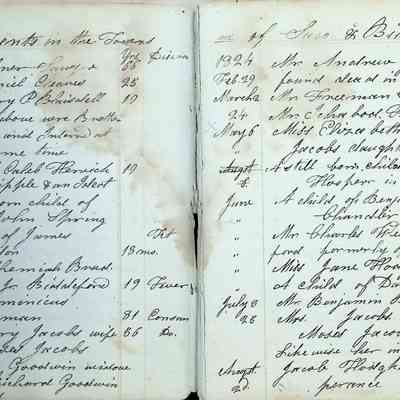 ents in the Towns
Yrs Disease
ner Savy & 55
niel Cleaves 25
ry P Blaisdell 17
above were Brothe
and Interred at
me time
Caleb Herrick 17
ripple & an Ideot
orn child of
John Spring
of James Fit
don 18 ms.
hemiah Brad.
Jr. Biddeford 19 Fever
menicus
man 81 Consum
ry Jacobs wife 66 Do.
Jacobs
Goodwin widow
Richard Goodwin
of Saco & Bi
1824 Mr Andrew
Feb 29 found dead in
March 2 Mr Freeman
24 Mr Chabod
May 6 Miss Elizabeth
Jacobs daugh
Augt A still born Chila
8 Hooper in
June A child of Benj
Chandler
" Mr Charles We
" ford formerly o
" Miss Jane Hoo
" A child of Da
July 8 Mr Benjamin
28 Mrs Jacobs
Moses Jacobs
Likewise her in
Augt Jacob Hodgk
2d. perance